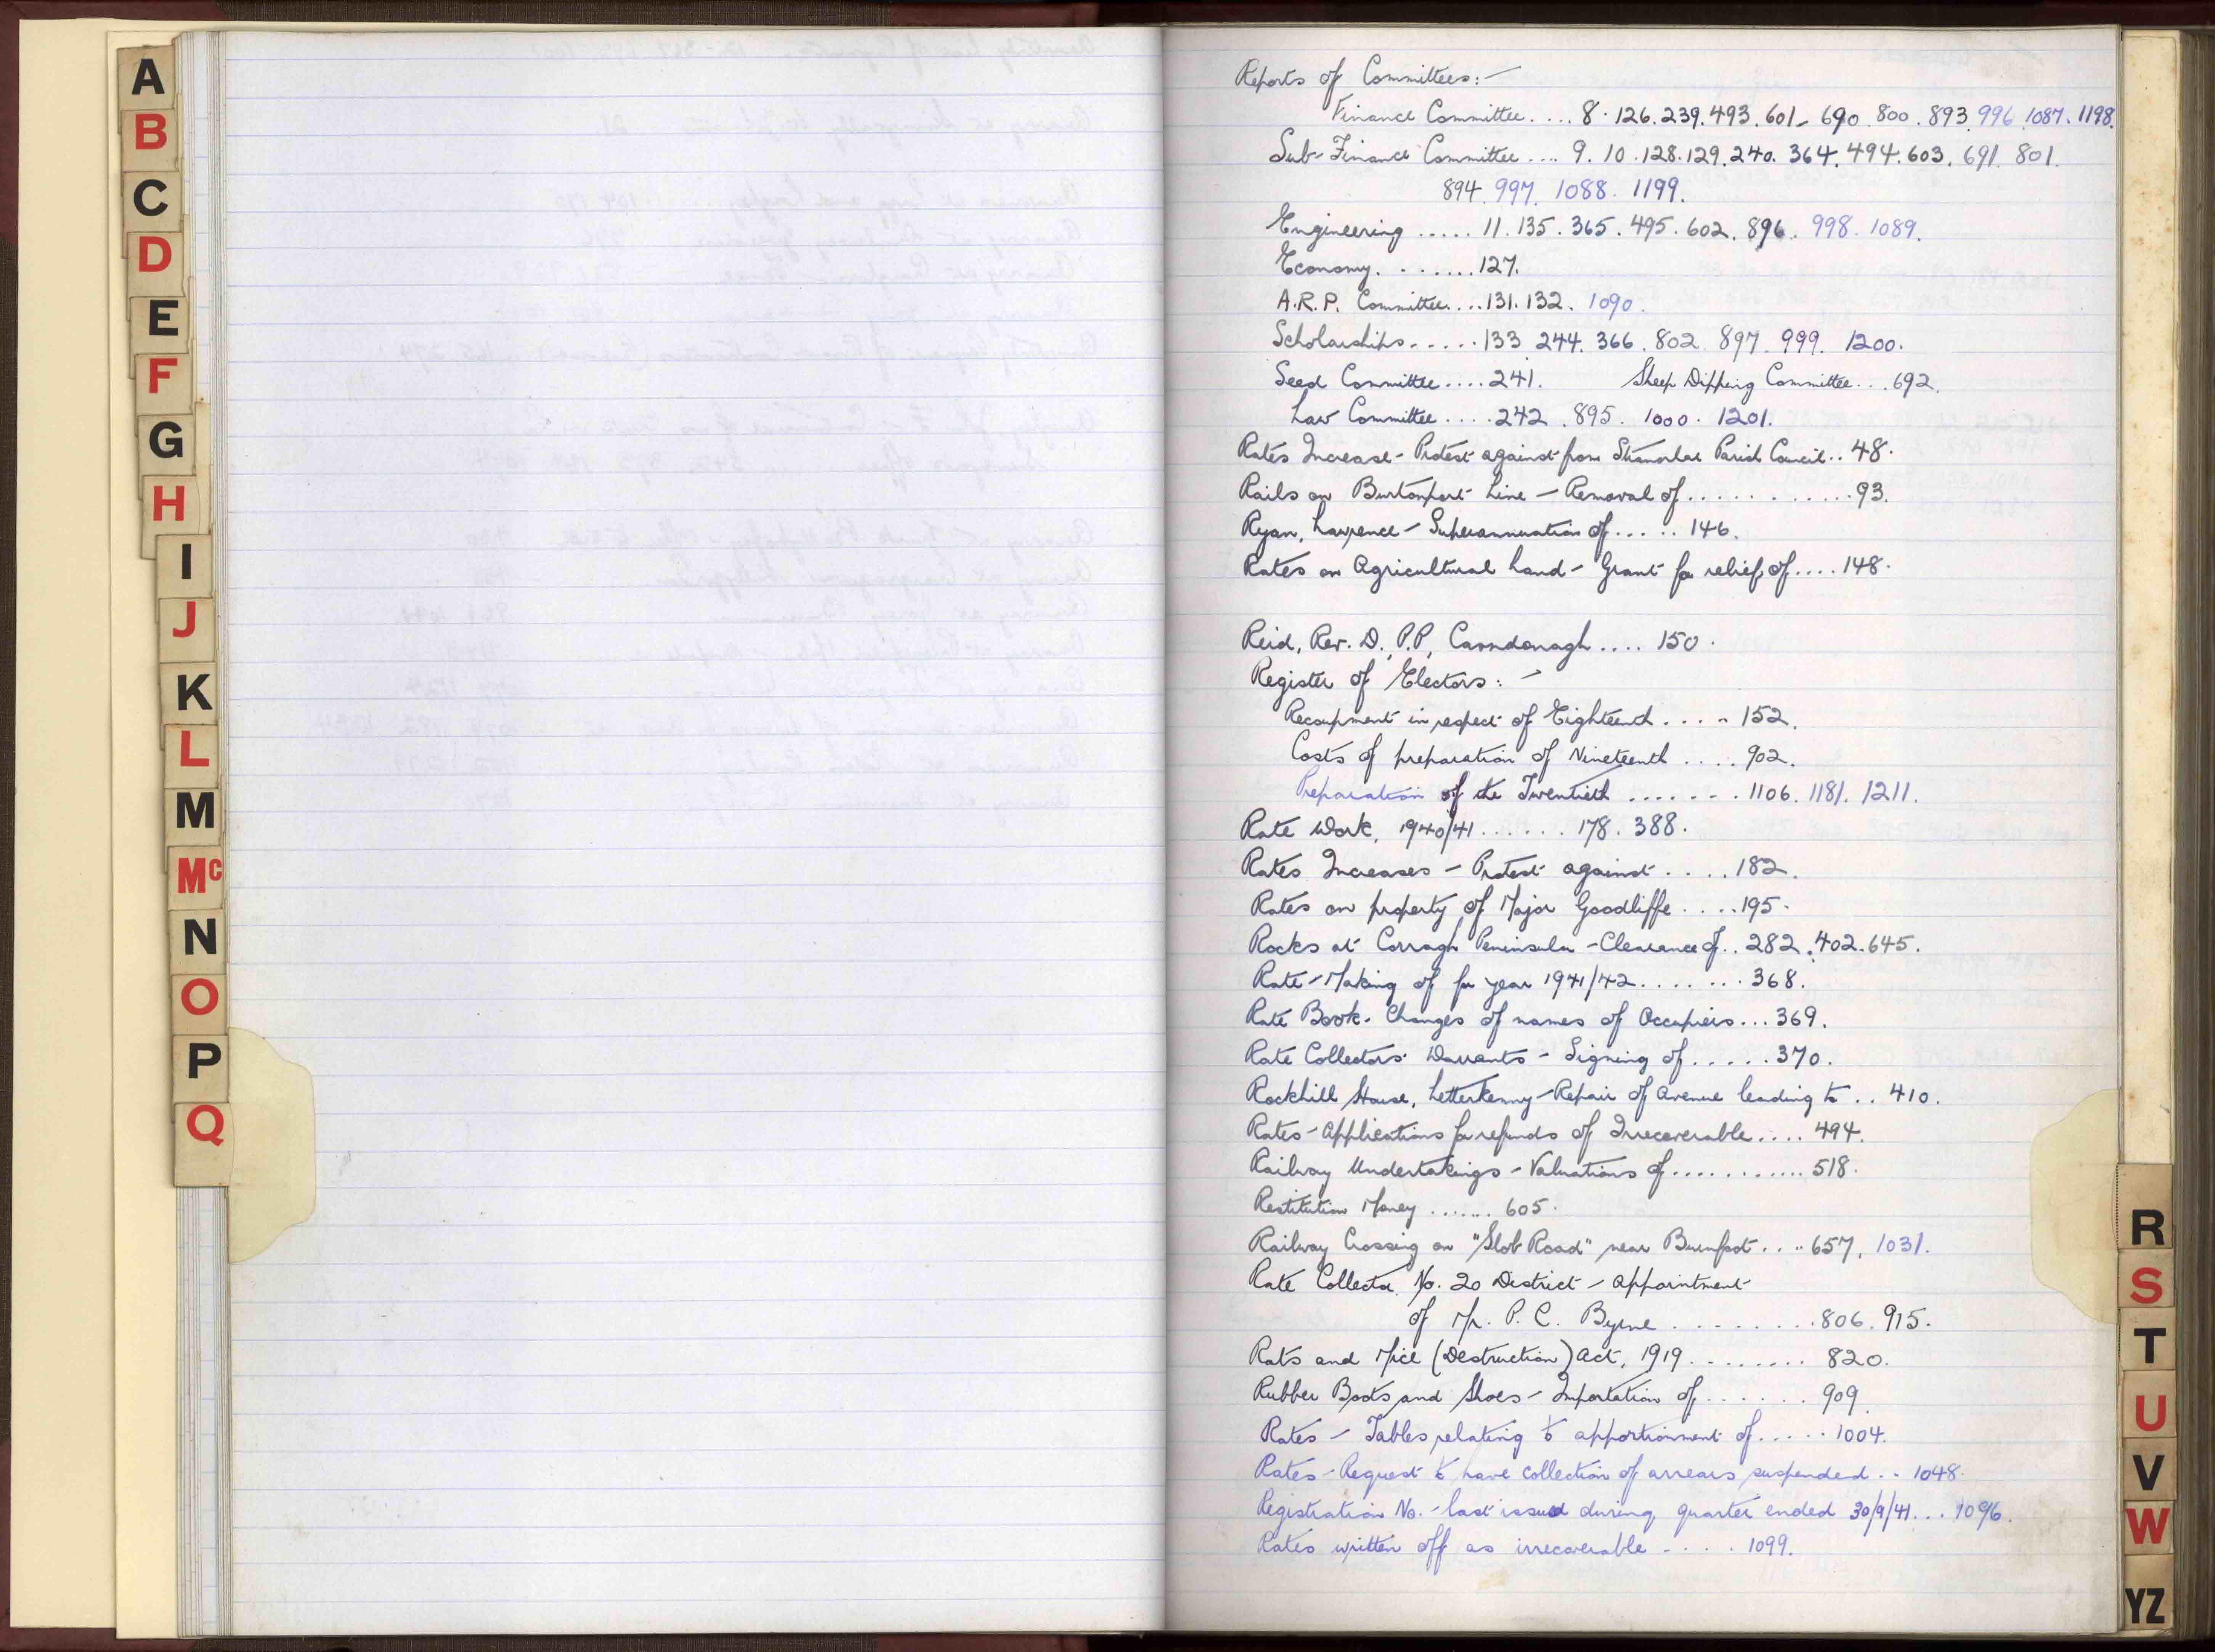 A
B
C
D
E
F
G
H
I
J
K
L
M
Mc
N
O
P
Q
Reports of Committees:-
Finance Committee. ... 8. 126. 239. 493. 601. 690. 800. 893. 996. 1087. 1198.
Sub-Finance Committee .... 9. 10. 128. 129. 240. 364. 494. 603. 691. 801.
894. 997. 1088. 1199.
Engineering ..... 11. 135. 365. 495. 602. 896. 998. 1089.
Economy. . ...... 127.
A.R.P. Committee.... 131. 132. 1090.
Scholarships...... 133 244. 366. 802. 897. 999. 1200.
Seed Committee .... 241. Sheep Dipping Committee... 692.
Law Committee .... 242. 895. 1000. 1201.
Rates Increase - Protest against from Stranorlar Parish Council.. 48.
Rails on Burtonport Line - Removal of ........... 93.
Ryan, Lawrence - Superannuation of ..... 146.
Rates on Agricultural Land - Grant for relief of .... 148.
Reid, Rev. D., P.P., Carndonagh .... 150.
Register of Electors: -
Recoupment in respect of Eighteenth .... 152.
Costs of preparation of Nineteenth .... 902.
Preparation of the Twentieth ....... 1106. 1181. 1211.
Rate Work, 1940/41 ...... 178. 388.
Rates Increases - Protest against .... 182.
Rates on property of Major Goodliffe .... 195.
Rocks at Corragh Peninsula - Clearance of .. 282. 402. 645.
Rate - Making of for year 1941/42 ....... 368.
Rate Book - Changes of names of Occupiers ... 369.
Rate Collectors' Warrants - Signing of ..... 370.
Rockhill House, Letterkenny - Repair of Avenue leading to .. 410.
Rates - Applications for refunds of Irrecoverable .... 494.
Railway Undertakings - Valuations of ........... 518.
Restitution Money ....... 605.
Railway Crossing on "Slob Road" near Burnfoot .... 657. 1031.
Rate Collector No. 20 District - Appointment
of Mr. P. C. Byrne ......... 806. 915.
Rats and Mice (Destruction) Act, 1919 ........ 820.
Rubber Boots and Shoes - Importation of ...... 909
Rates - Tables relating to apportionment of ..... 1004.
Rates - Request to have collection of arrears suspended .. 1048.
Registration No. - last issued during quarter ended 30/9/41 ... 1096.
Rates written off as irrecoverable .... 1099.
R
S
T
U
V
W
YZ